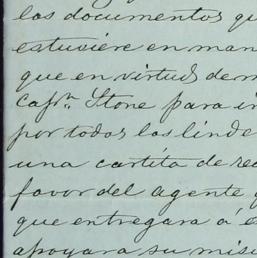 los documentos qu
estuviere en man
que en virtud de m
Capn. Stone para in
por todos los linde
una cartita de rec
favor del agente
que entregara á é
apoyara su misi